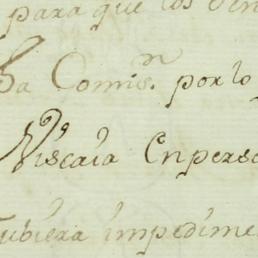 para que los
Comis.n por lo
Viscaia Enperso
tubiera impedime